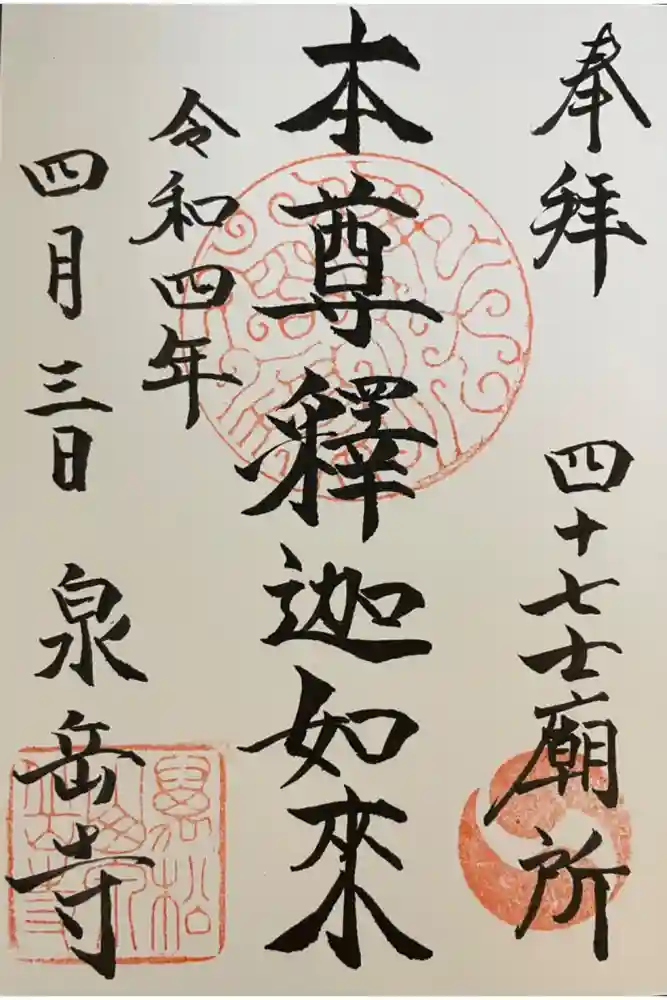 奉拝
四十七士廟所
本尊釋迦如來
令和四年
四月三日
泉岳寺